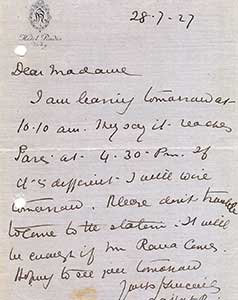 28-7-27
Hotel
Dear Madame
I am leaving tomorrow at
10.10 am. They say it reaches
Paris at 4.30 Pm. If
it is different I will wire
tomorrow. Please don't trouble
to come to the station. It will
be enough if Mr Rana comes.
Hoping to see you tomorrow
Yours sincerely